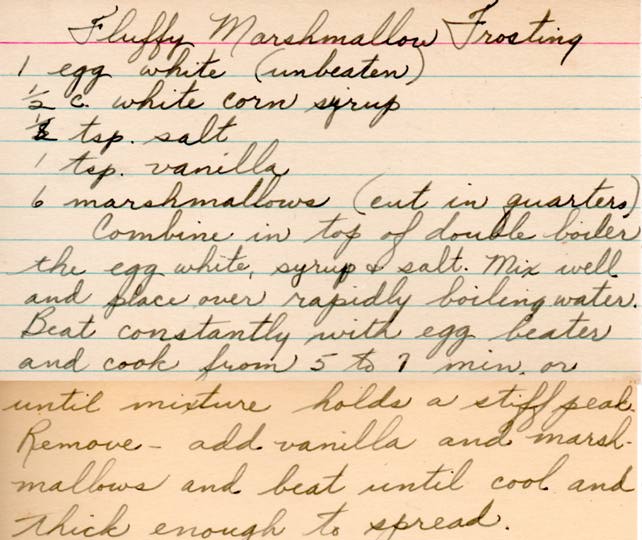 Fluffy Marshmallow Frosting
1 egg white (unbeaten)
1/2 c. white corn syrup
tsp. salt
1 tsp. vanilla
6 marshmallows (cut in quarters)
Combine in top of double boiler
the egg white, syrup & salt. Mix well
and place over rapidly boiling water.
Beat constantly with egg beater
and cook from 5 to 7 min. or
until mixture holds a stiff peak.
Remove - add vanilla and marsh-
mallows and beat until cool and
thick enough to spread.